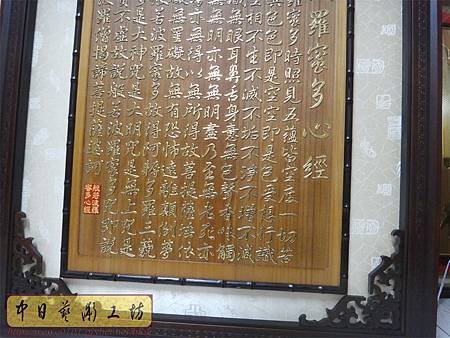 羅蜜多心經
羅蜜多時照見五蘊皆空度一切苦
異色色即是空空即是色受想行識
相不生不滅不垢不淨不增不減
無眼耳鼻舌身意無色聲香味觸
無明亦無無明盡乃至無老死亦
亦無得以無所得故菩提薩埵依
無罣礙故無有恐怖遠離顛倒夢
般若波羅蜜多故得阿耨多羅三藐
是大神咒是大明咒是無上咒是
實不虛故說般若波羅蜜多咒即說
羅僧揭諦菩提薩婆訶
般若波羅
蜜多心經
中日藝術工坊